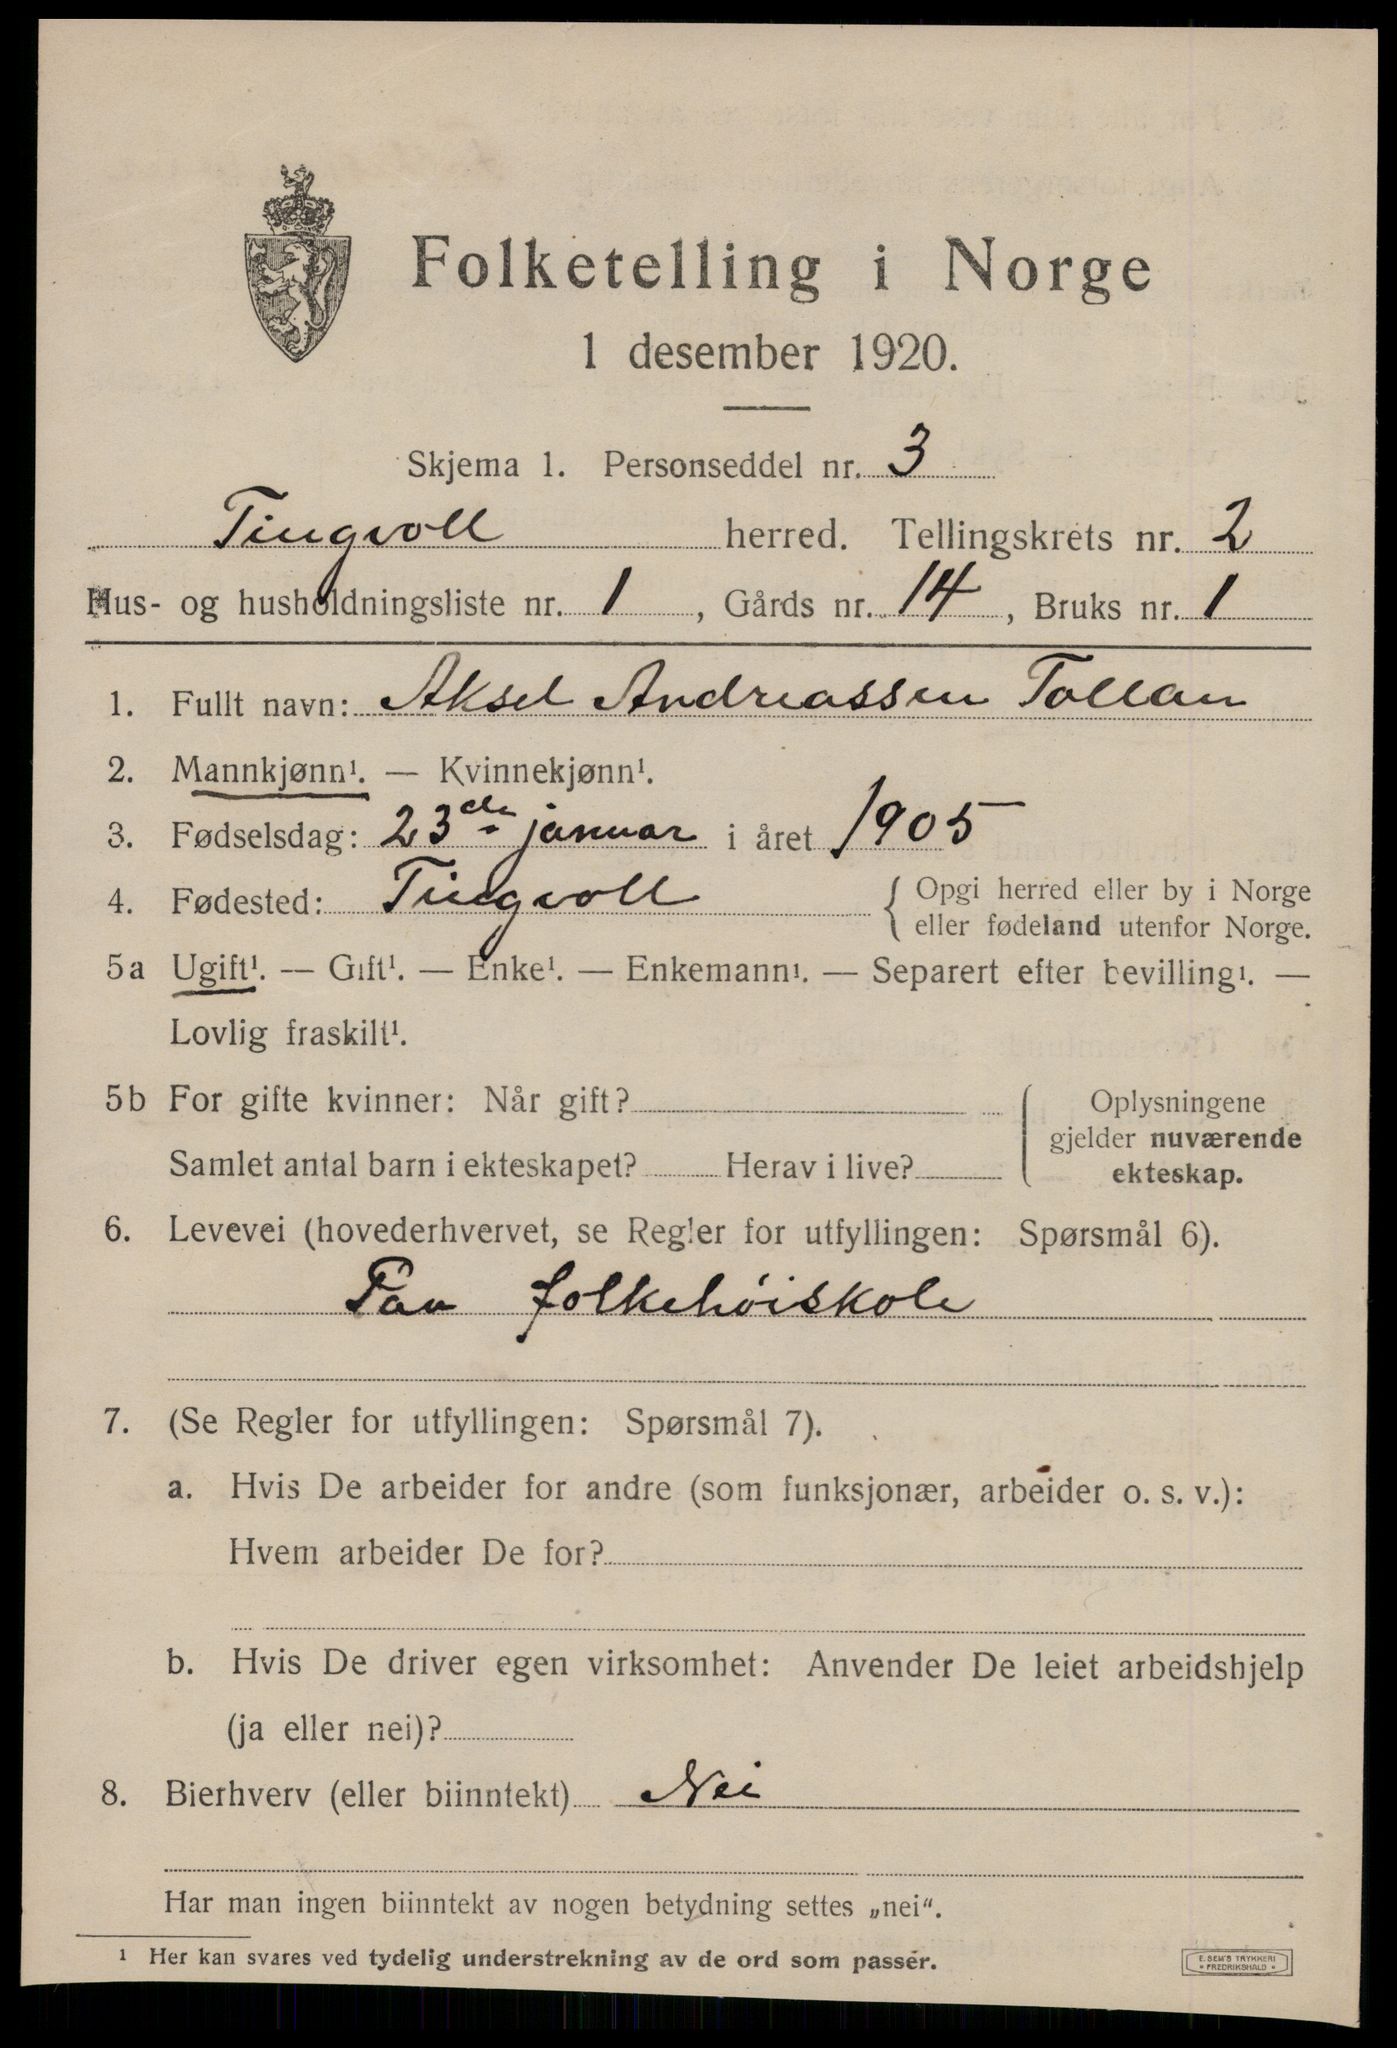 Folketelling i Norge
1 desember 1920.
Skjema 1. Personseddel nr. 3
Tingvoll herred. Tellingskrets nr. 2
Hus- og husholdningsliste nr. 1, Gårds nr. 14, Bruks nr. 1
1. Fullt navn: Aksel Andreassen Tollan
2. Mannkjønn¹. — Kvinnekjønn¹.
3. Fødselsdag: 23de januar i året 1905
4. Fødested: Tingvoll { Opgi herred eller by i Norge
eller fødeland utenfor Norge.
5a Ugift¹. — Gift¹. — Enke¹. — Enkemann¹. — Separert efter bevilling¹. —
Lovlig fraskilt¹.
5b For gifte kvinner: Når gift?
Samlet antal barn i ekteskapet? Herav i live?
{ Oplysningene
gjelder nuværende
ekteskap.
6. Levevei (hovederhvervet, se Regler for utfyllingen: Spørsmål 6).
Paa folkehöiskole
7. (Se Regler for utfyllingen: Spørsmål 7).
a. Hvis De arbeider for andre (som funksjonær, arbeider o. s. v.):
Hvem arbeider De for?
b. Hvis De driver egen virksomhet: Anvender De leiet arbeidshjelp
(ja eller nei)?
8. Bierhverv (eller biinntekt) Nei
Har man ingen biinntekt av nogen betydning settes „nei“.
¹ Her kan svares ved tydelig understrekning av de ord som passer.
E. SEM'S TRYKKERI
* FREDRIKSHALD *